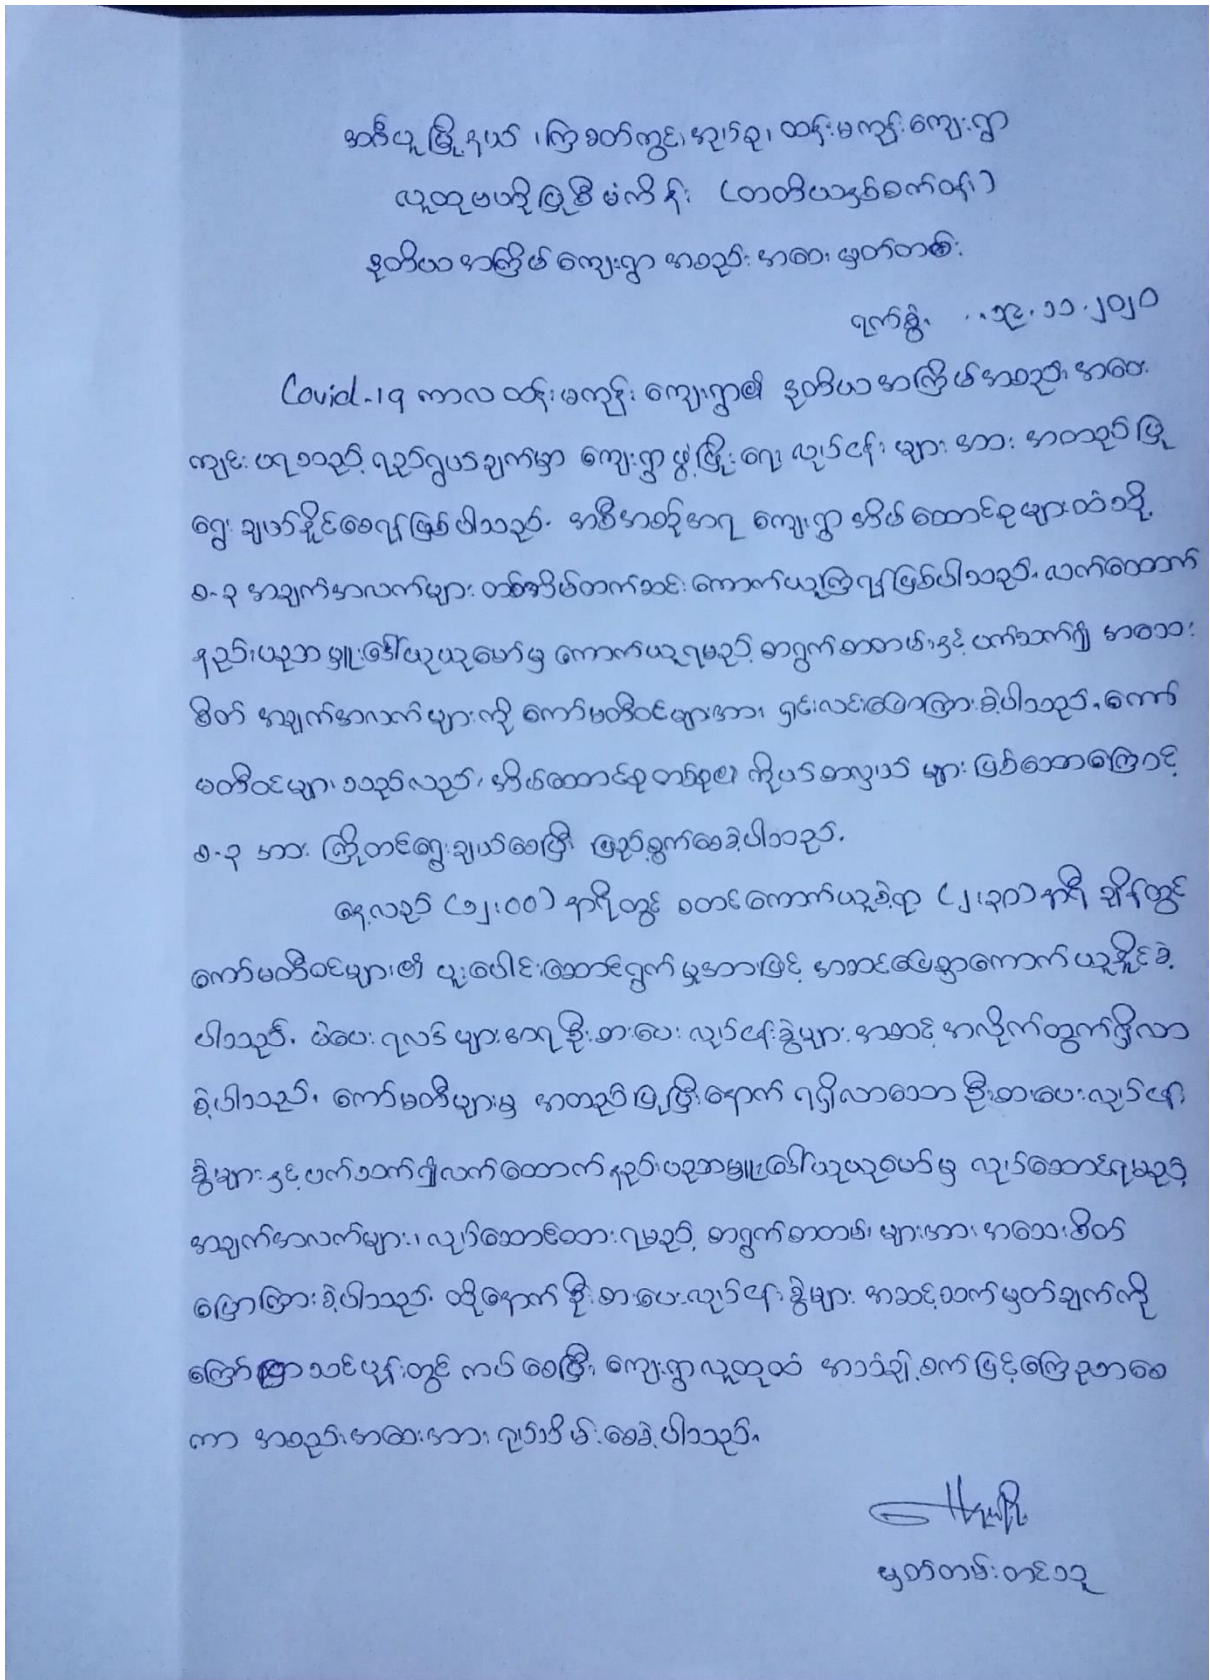 အင်္ဂပူမြို့နယ်၊ ကြခတ်ကွင်းအုပ်စု၊ ထန်းမကုန်းကျေးရွာ
လူထုဗဟိုပြုစီမံကိန်း (တတိယနှစ်စက်ဝန်း)
ဒုတိယအကြိမ် ကျေးရွာ အစည်းအဝေး မှတ်တမ်း
ရက်စွဲ၊ ..၁၉.၁၁.၂၀၂၀
Covid-19 ကာလ ထန်းမကုန်း ကျေးရွာ၏ ဒုတိယအကြိမ်အစည်းအဝေး
ကျင်းပရသည့် ရည်ရွယ်ချက်မှာ ကျေးရွာဖွံ့ဖြိုးရေး လုပ်ငန်းများအား အတည်ပြု
ရွေးချယ်နိုင်စေရန်ဖြစ်ပါသည်။ အစီအစဉ်အရ ကျေးရွာ အိမ်ထောင်စုများထံသို့
စ-၃ အချက်အလက်များ တစ်အိမ်တက်ဆင်းကောက်ယူကြရန်ဖြစ်ပါသည်။ လက်ထောက်
နည်းပညာမှူးဒေါ်ယုယုမော်မှ ကောက်ယူရမည့် စာရွက်စာတမ်းနှင့်ပက်သက်၍ အသေး
စိတ် အချက်အလက်များကို ကော်မတီဝင်များအား ရှင်းလင်းပြောကြားခဲ့ပါသည်။ ကော်
မတီဝင်များသည်လည်း အိမ်ထောင်စုတစ်စု၏ ကိုယ်စာလှယ် များဖြစ်သောကြောင့်
စ-၃ အား ကြိုတင်ရွေးချယ်စေပြီး ဖြည့်စွက်စေခဲ့ပါသည်။
နေ့လည် (၁၂:၀၀) နာရီတွင် စတင်ကောက်ယူခဲ့ရာ (၂:၃၀) နာရီ ချိန်တွင်
ကော်မတီဝင်များ၏ ပူးပေါင်းဆောင်ရွက်မှုအားဖြင့် အဆင်ပြေစွာကောက်ယူနိုင်ခဲ့
ပါသည်။ မဲပေး ရလဒ်များအရ ဦးစားပေး လုပ်ငန်းခွဲများ အဆင့်အလိုက်ထွက်ရှိလာ
ခဲ့ပါသည်။ ကော်မတီများမှ အတည်ပြုပြီးနောက် ရရှိလာသော ဦးစားပေးလုပ်ငန်း
ခွဲများနှင့်ပက်သက်၍လက်ထောက်နည်းပညာမှူးဒေါ်ယုယုမော်မှ လုပ်ဆောင်ရမည့်
အချက်အလက်များ၊ လုပ်ဆောင်ထားရမည့် စာရွက်စာတမ်း များအား အသေးစိတ်
ပြောကြားခဲ့ပါသည်။ ထို့နောက် ဦးစားပေးလုပ်ငန်းခွဲများ အဆင့်သက်မှတ်ချက်ကို
ကြော်ငြာသင်ပုန်းတွင် ကပ်စေပြီး ကျေးရွာလူထုထံ အသံချဲ့စက်ဖြင့်ကြေညာစေ
ကာ အစည်းအဝေးအား ရုပ်သိမ်းစေခဲ့ပါသည်။
မှတ်တမ်းတင်သူ